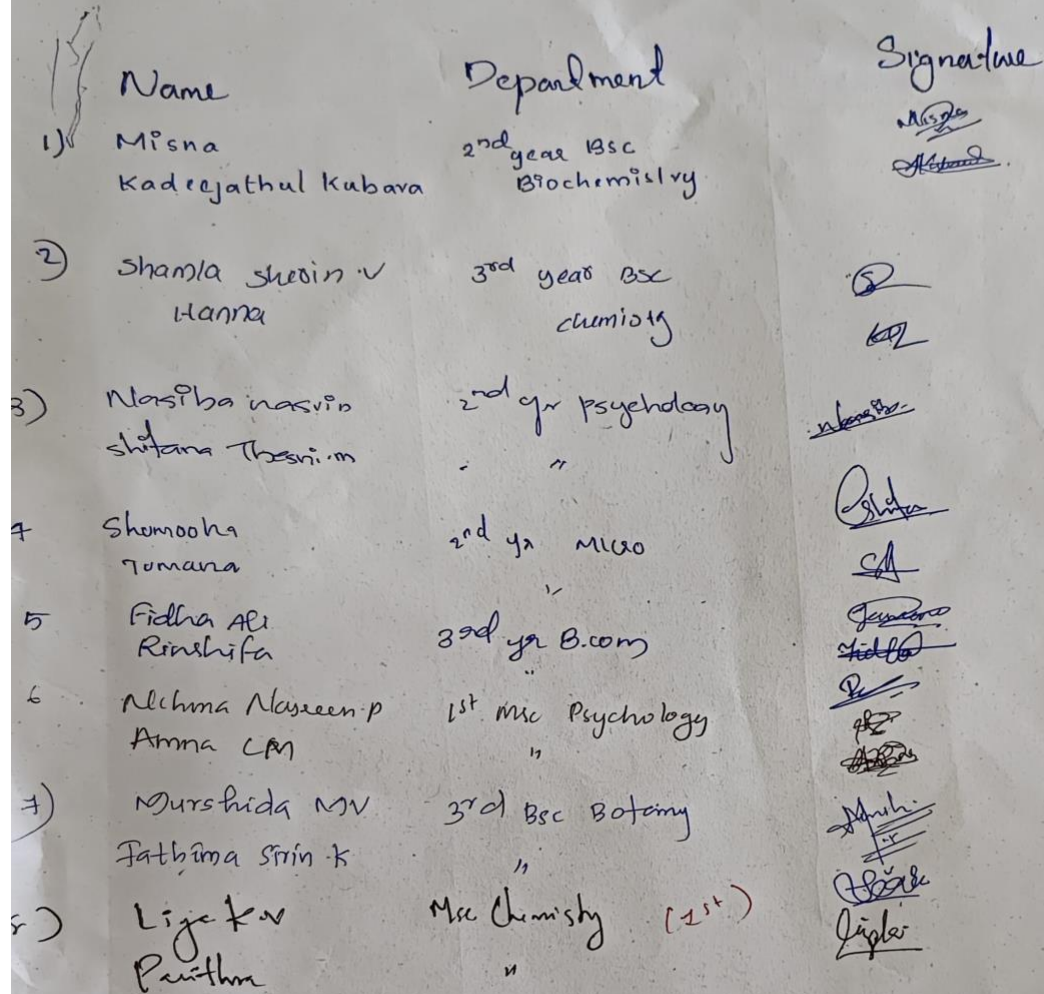 Name Department Signature
1) Misna 2nd year BSC Misna
Kadeejathul Kubara Biochemistry
2) Shamla sherin .V 3rd year BSC
Hanna chemisty
3) Nasiba nasvin 2nd yr psychology
shifana Thesni .m "
4 Shomooha 2nd yr Micro Shifa
Tumana "
5 Fidha Ali 3rd yr B.com
Rinshifa " Fidha
6 Nichma Nasreen .p 1st Msc Psychology
Amna CM "
7) Murshida MV 3rd Bsc Botany
Fathima Sirin .K "
8) Lije k v Msc Chemisty (1st)
Pavithra "